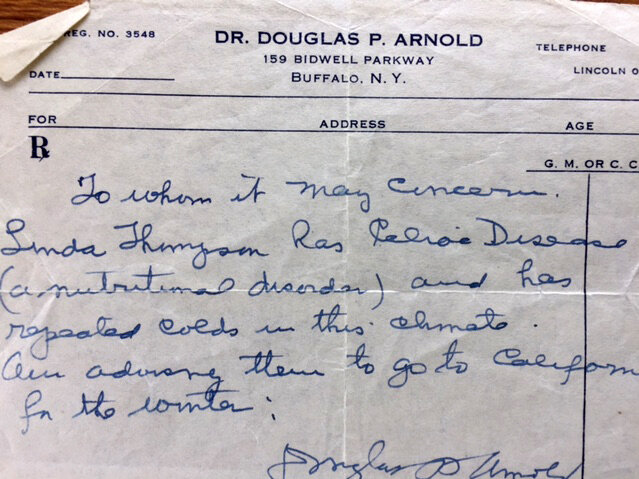 REG. NO. 3548
DR. DOUGLAS P. ARNOLD
159 BIDWELL PARKWAY
BUFFALO, N. Y.
TELEPHONE
LINCOLN 0
DATE
FOR ADDRESS AGE
℞
G. M. OR C. C
To whom it may concern.
Linda Thompson has Celiac Disease
(a nutritional disorder) and has
repeated colds in this climate.
Am advising them to go to Californ
for the winter.
Douglas P Arnold